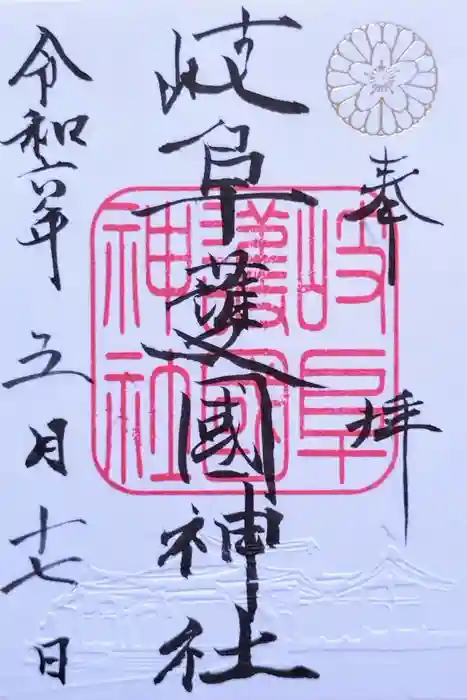 奉拝
岐阜護國神社
岐阜護國神社
令和六年五月十七日